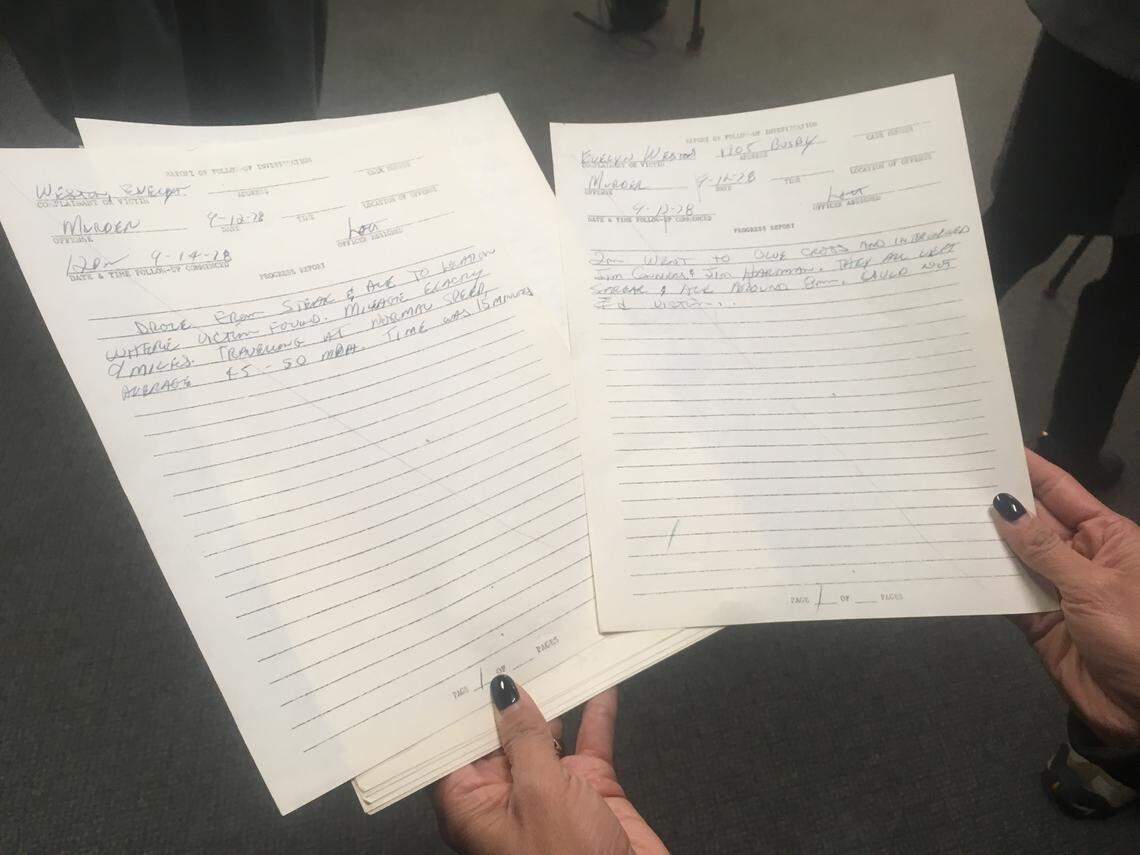 REPORT OF FOLLOW-UP INVESTIGATION
CASE NUMBER
WESTON, EVELYN
COMPLAINANT OR VICTIM
ADDRESS
LOCATION OF OFFENSE
MURDER 9-12-78
OFFENSE
DATE
TIME
OFFICER ASSIGNED
12pm 9-14-78
DATE & TIME FOLLOW-UP COMMENCED
PROGRESS REPORT
DROVE FROM STEAK & ALE TO LOCATION
WHERE VICTIM FOUND. MILEAGE EXACTLY
9 MILES. TRAVELING AT NORMAL SPEED,
AVERAGE 45-50 MPH. TIME WAS 15 MINUTES
PAGE 1 OF PAGES
REPORT OF FOLLOW-UP INVESTIGATION
CASE NUMBER
EVELYN WESTON 1205 BUSBY
COMPLAINANT OR VICTIM
ADDRESS
LOCATION OF OFFENSE
MURDER 9-12-78
OFFENSE
DATE
TIME
OFFICER ASSIGNED
9-13-78
DATE & TIME FOLLOW-UP COMMENCED
PROGRESS REPORT
2pm WENT TO BLUE CROSS AND INTERVIEWED
JIM & JIM HARDMAN. THEY ALL LEFT
STEAK & ALE AROUND 8pm. COULD NOT
PAGE 1 OF PAGES